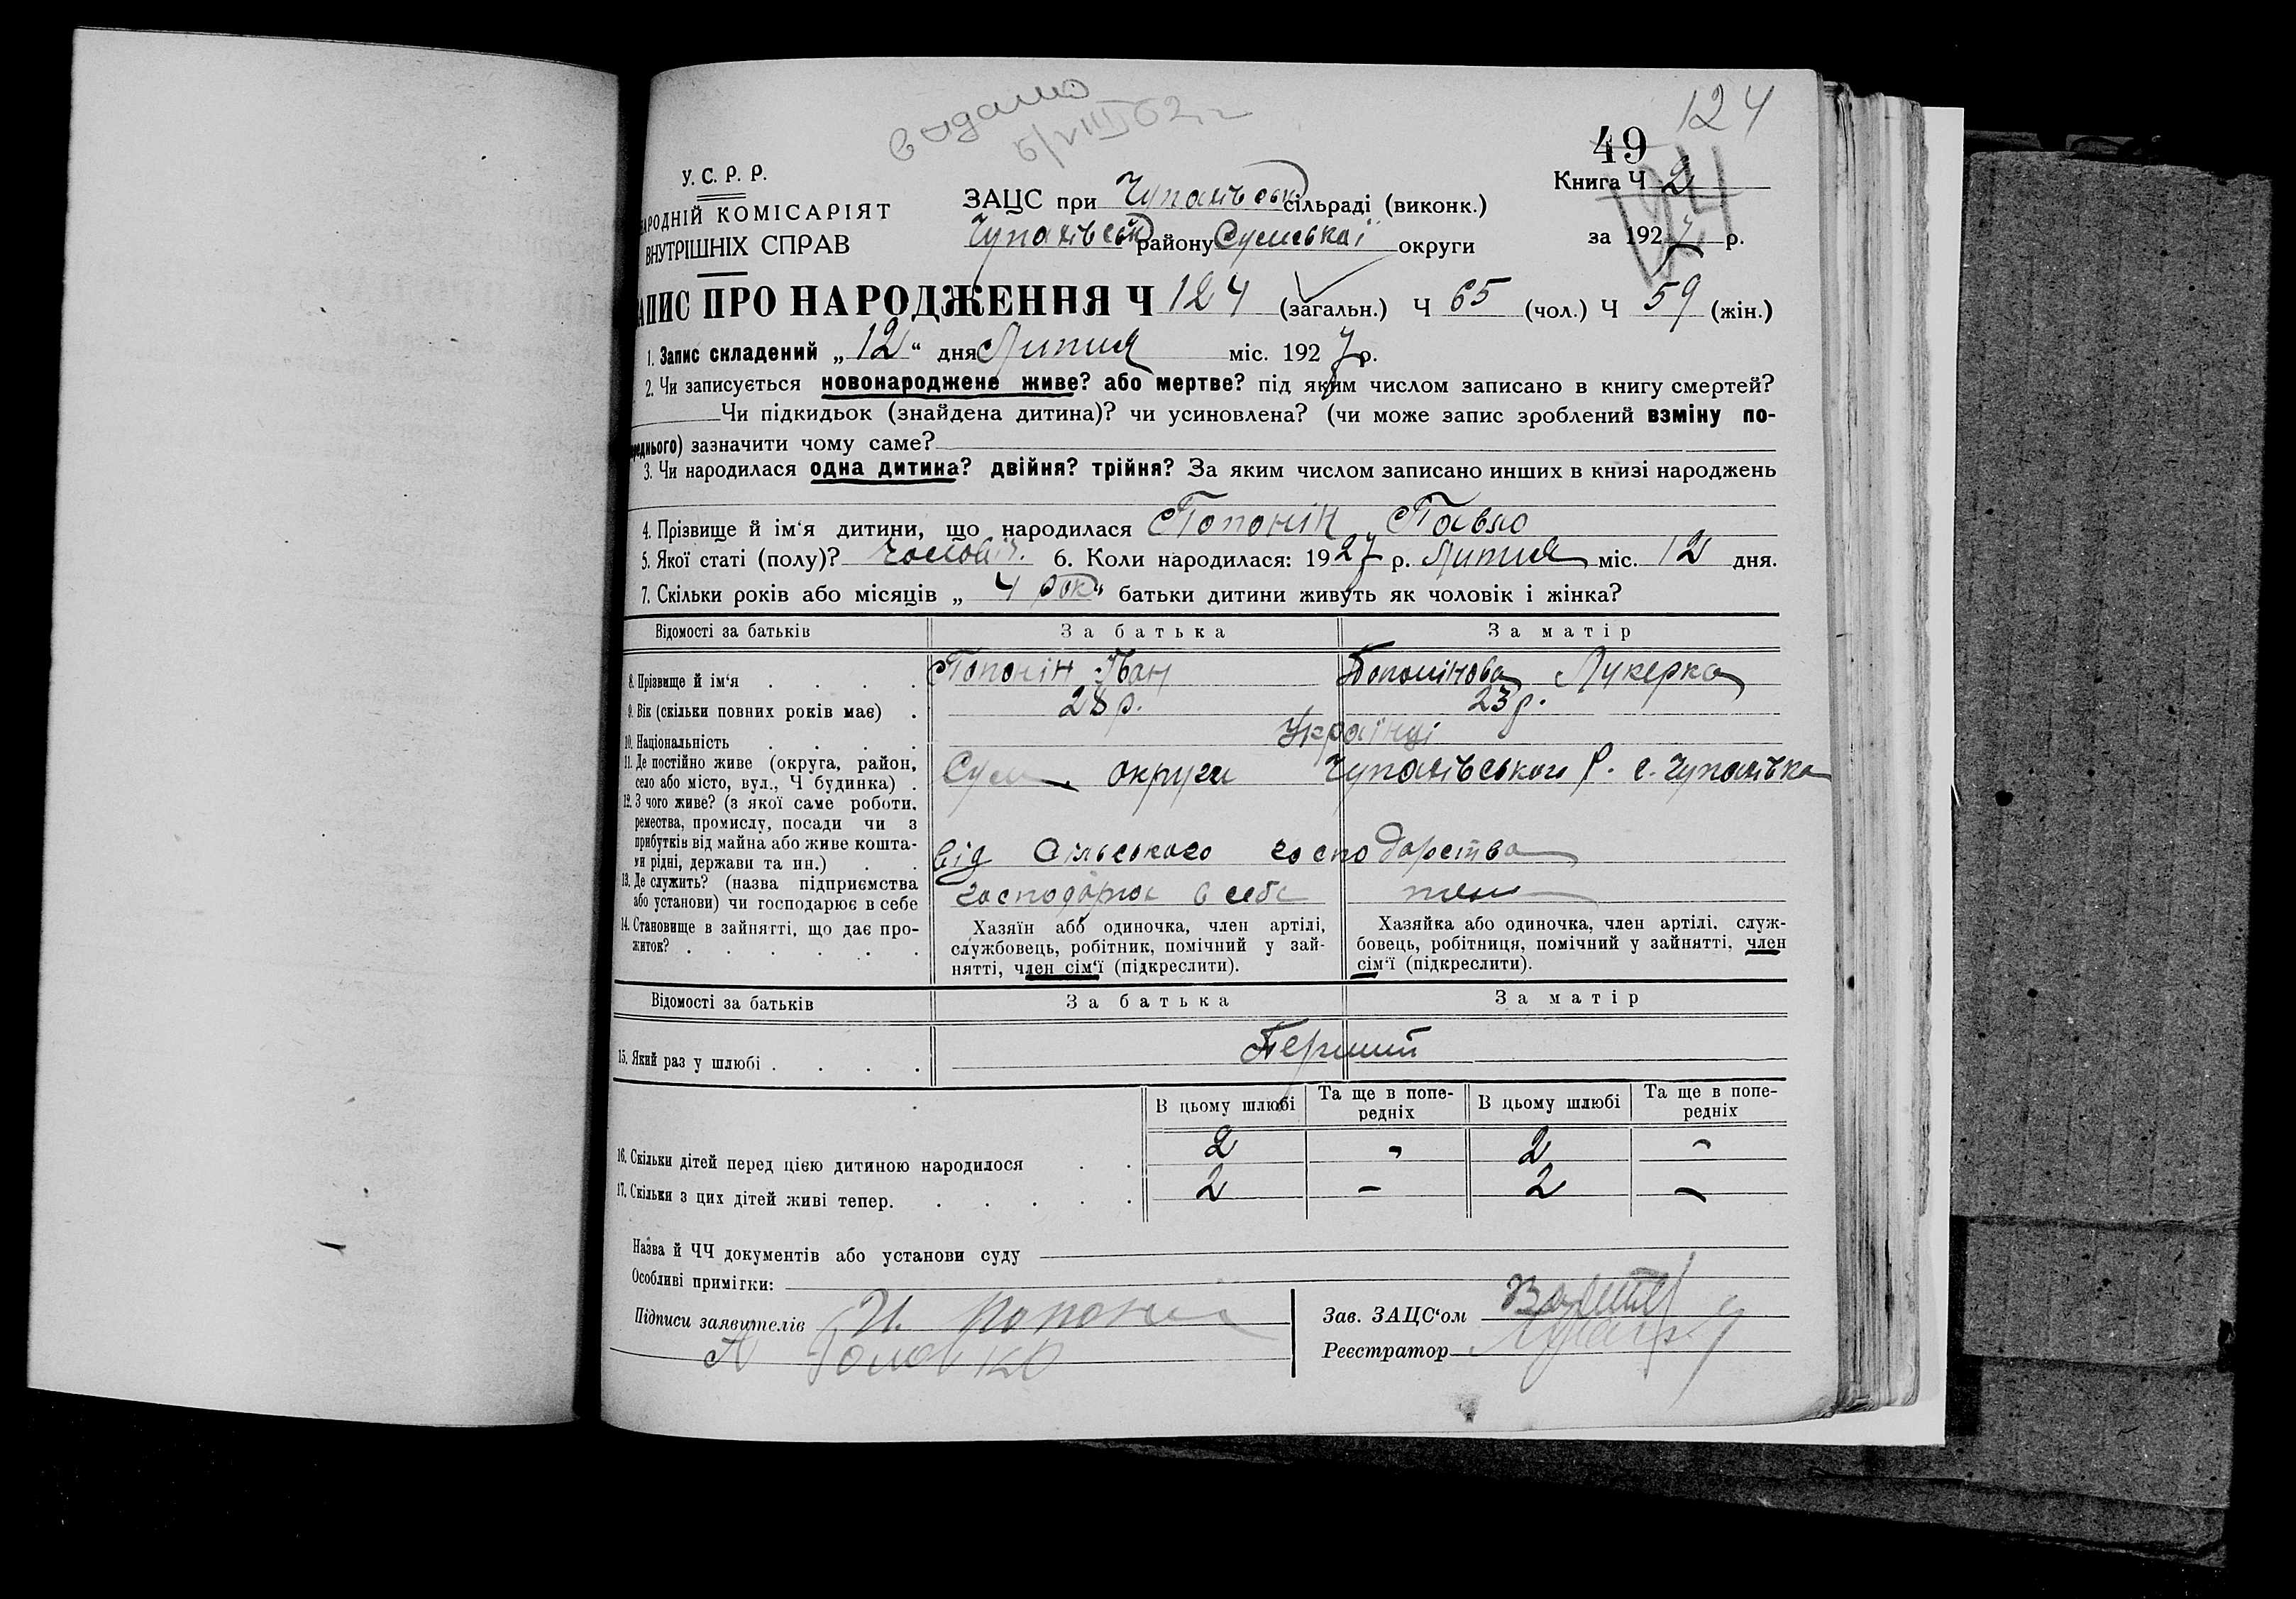 124
видано
49
У. С. Р. Р.
Книга Ч 2
124
ЗАЦС при Чупахівськ сільраді (виконк.)
НАРОДНІЙ КОМІСАРІЯТ
Чупахівськ району Сумської округи
за 1927 р.
ВНУТРІШНІХ СПРАВ
АПИС ПРО НАРОДЖЕННЯ Ч 124 (загальн.) Ч 65 (чол.) Ч 59 (жін.)
1. Запис складений „12“ дня Липня міс. 1927 р.
2. Чи записується новонароджене живе? або мертве? під яким числом записано в книгу смертей?
Чи підкидьок (знайдена дитина)? чи усиновлена? (чи може запис зроблений взміну по-
реднього) зазначити чому саме?
3. Чи народилася одна дитина? двійня? трійня? За яким числом записано инших в книзі народжень
4. Прізвище й ім‘я дитини, що народилася Попонін Павло
5. Якої статі (полу)? чоловіч. 6. Коли народилася: 1927 р. Липня міс. 12 дня.
7. Скільки років або місяців „ 4 рок “ батьки дитини живуть як чоловік і жінка?
Відомості за батьків За батька За матір
8. Прізвище й ім‘я . . . . Попонін Іван Попонінова Лукерка
9. Вік (скільки повних років має) . 28 р. 23 р.
10. Національність . . . . Українці
11. Де постійно живе (округа, район,
село або місто, вул., Ч будинка) . Сум. округи Чупахівського р. с. Чупахівка
12. З чого живе? (з якої саме роботи,
ремества, промислу, посади чи з
прибутків від майна або живе кошта-
ми рідні, держави та ин.) . . від сільського господарства
13. Де служить? (назва підприємства
або установи) чи господарює в себе господарює в себе теж
14. Становище в зайнятті, що дає про-
житок? . . . . . .
Хазяїн або одиночка, член артілі,
службовець, робітник, помічний у зай-
нятті, член сім‘ї (підкреслити).
Хазяйка або одиночка, член артілі, служ-
бовець, робітниця, помічний у зайнятті, член
сім‘ї (підкреслити).
Відомості за батьків За батька За матір
15. Який раз у шлюбі . . . . Перший
В цьому шлюбі Та ще в попе-
редніх В цьому шлюбі Та ще в попе-
редніх
16. Скільки дітей перед цією дитиною народилося . . 2 - 2 -
17. Скільки з цих дітей живі тепер. . . . . . 2 - 2 -
Назва й ЧЧ документів або установи суду
Особливі примітки:
Підписи заявителів И. Попонін
А Головко
Зав. ЗАЦС‘ом
Реєстратор